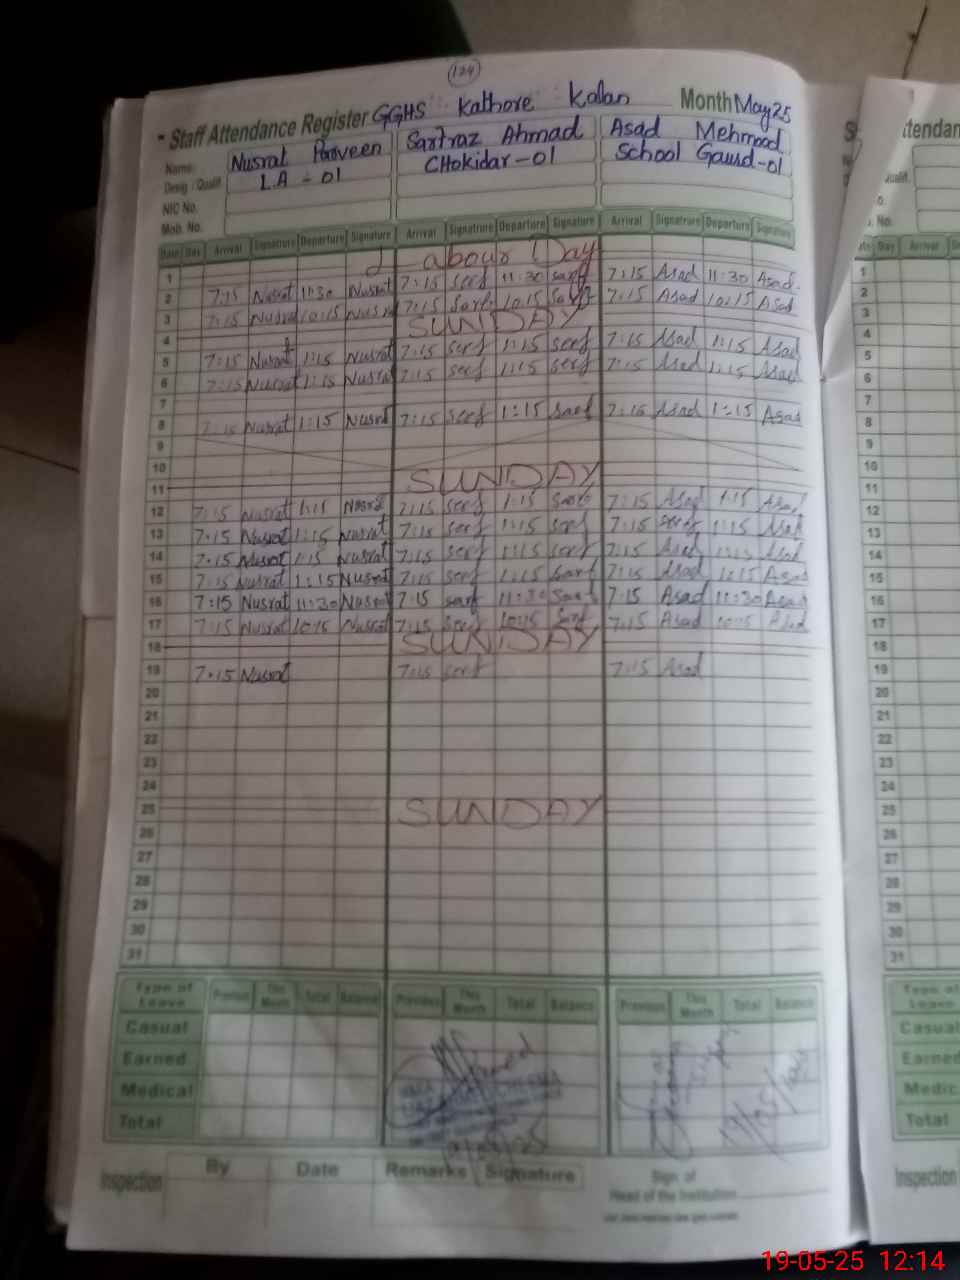 124
Staff Attendance Register GGHS Kathore Kalan Month May 25
Name: Nusrat Parveen Sarfraz Ahmad Asad Mehmood
Desig. / Qualif. L.A - 01 CHokidar - 01 School Gaurd - 01
NIC No.
Mob. No.
Date Day Arrival Signature Departure Signature Arrival Signatrure Departure Signature Arrival Signatrure Departure Signature
1 Labour Day
2 7:15 Nusrat 11:30 Nusrat 7:15 serf 11:30 sarf 7:15 Asad 11:30 Asad
3 7:15 Nusrat 10:15 Nusrat 7:15 Sarf 10:15 Sarf 7:15 Asad 10:15 Asad
4 SUNDAY
5 7:15 Nusrat 1:15 Nusrat 7:15 serf 1:15 serf 7:15 Asad 1:15 Asad
6 7:15 Nusrat 1:15 Nusrat 7:15 serf 1:15 serf 7:15 Asad 1:15 Asad
7
8 7:15 Nusrat 1:15 Nusrat 7:15 serf 1:15 sarf 7:15 Asad 1:15 Asad
9
10
11 SUNDAY
12 7:15 Nusrat 1:15 7:15 serf 1:15 Sarf 7:15 Asad 1:15 Asad
13 7:15 Nusrat 1:15 Nusrat 7:15 serf 1:15 serf 7:15 1:15 Asad
14 7:15 Nusrat 1:15 Nusrat 7:15 serf 1:15 serf 7:15 Asad 1:15 Asad
15 7:15 Nusrat 1:15 Nusrat 7:15 serf 1:15 Sarf 7:15 Asad 1:15 Asad
16 7:15 Nusrat 11:30 Nusrat 7:15 sarf 11:30 Sarf 7:15 Asad 11:30 Asad
17 7:15 Nusrat 10:15 Nusrat 7:15 serf 10:15 Sarf 7:15 Asad 10:15 Asad
18 SUNDAY
19 7:15 Nusrat 7:15 serf 7:15 Asad
20
21
22
23
24
25 SUNDAY
26
27
28
29
30
31
Type of Leave Previous This Month Total Balance Previous This Month Total Balance Previous This Month Total Balance
Casual
Earned
Medical
Total
Inspection By Date Remarks Signature
Sign. of
Head of the Institution
19-05-25 12:14